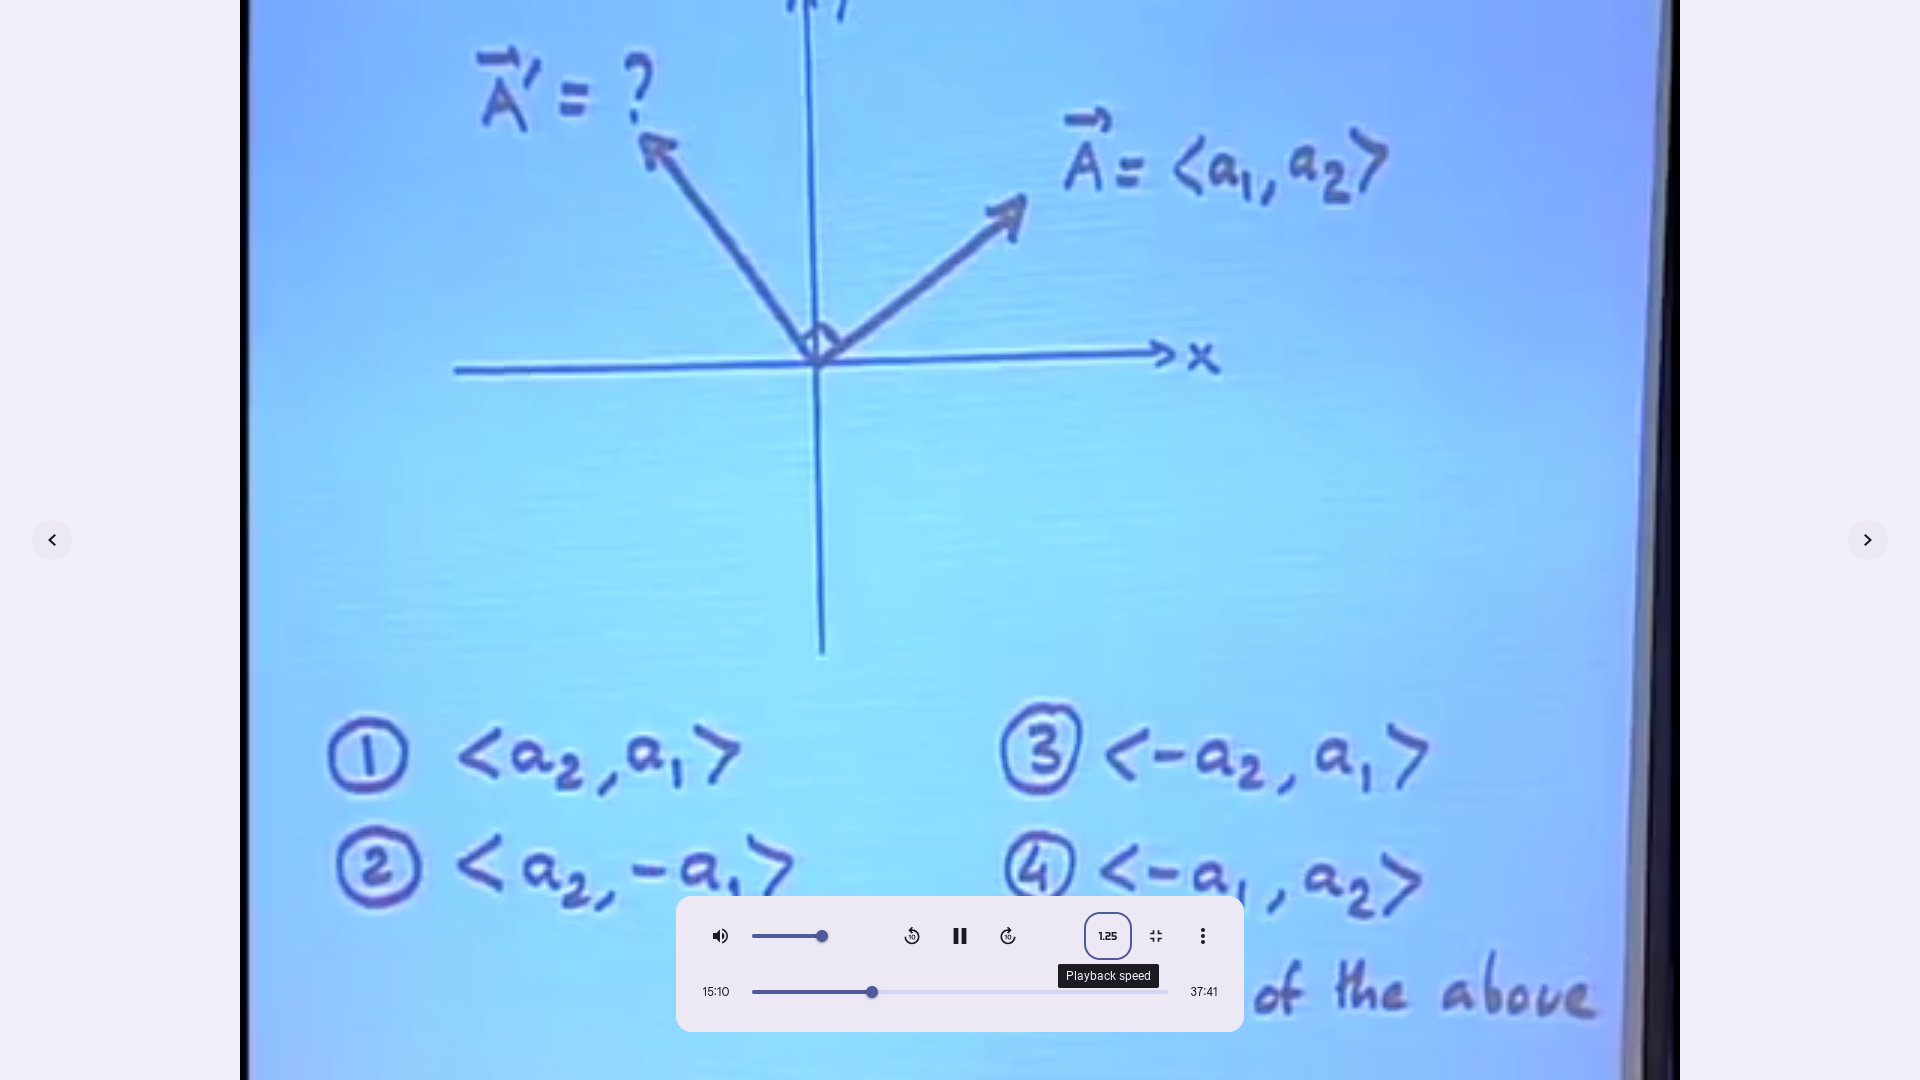 A⃗' = ?
A⃗ = <a₁, a₂>
x
① <a₂, a₁>
③ <-a₂, a₁>
② <a₂, -a₁>
④ <-a₁, a₂>
of the above
1.25
Playback speed
15:10
37:41